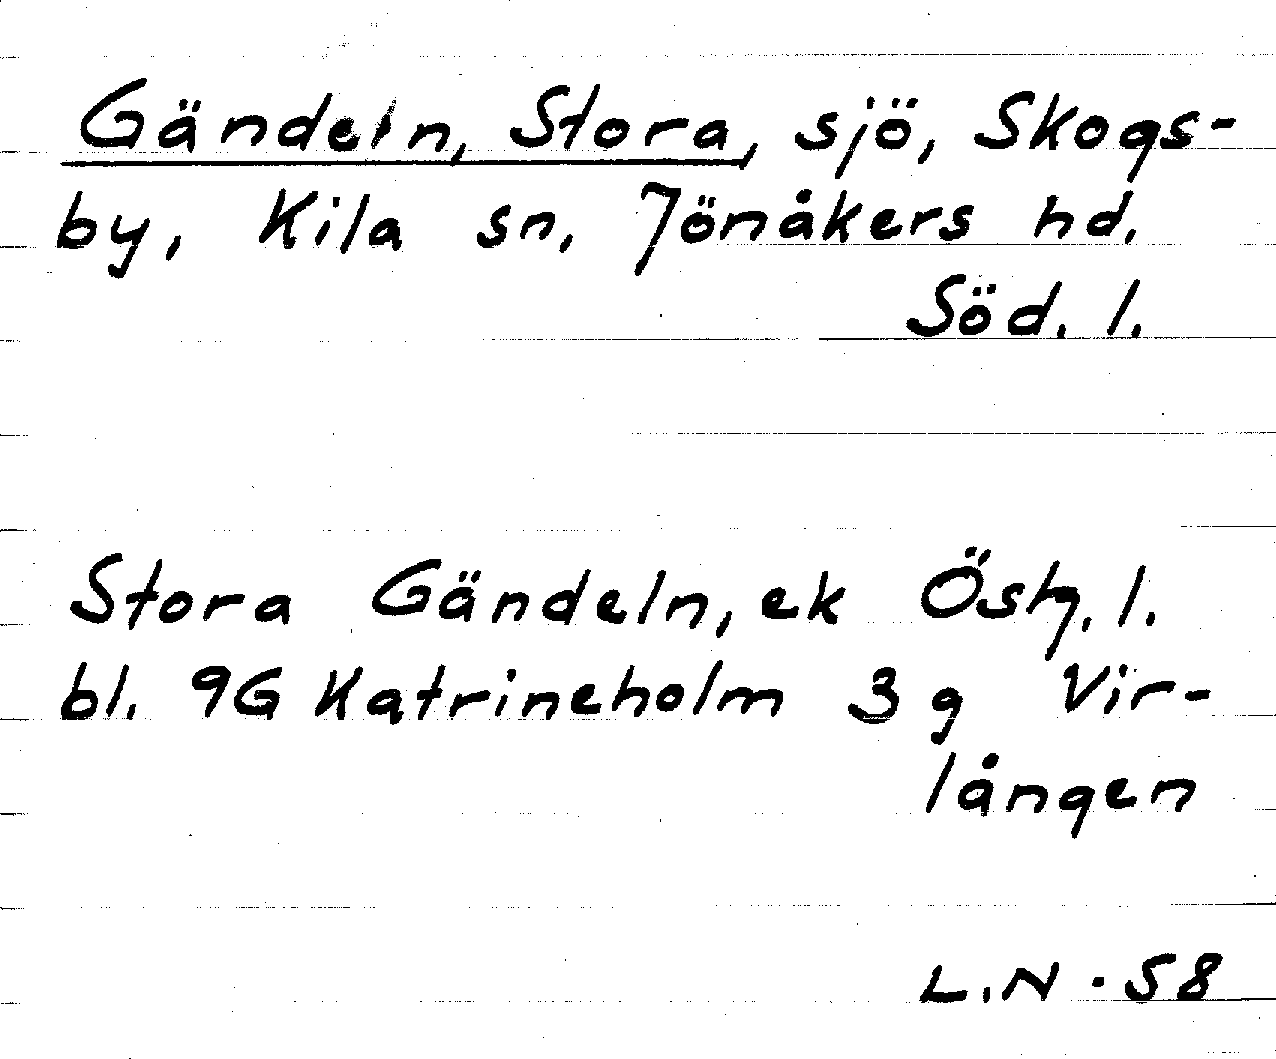 Gändeln, Stora, sjö, Skogs-
by, Kila sn, Jönåkers hd.
Söd. l.
Stora Gändeln, ek Östg. l.
bl. 9G Katrineholm 3 g Vir-
lången
L.N. 58